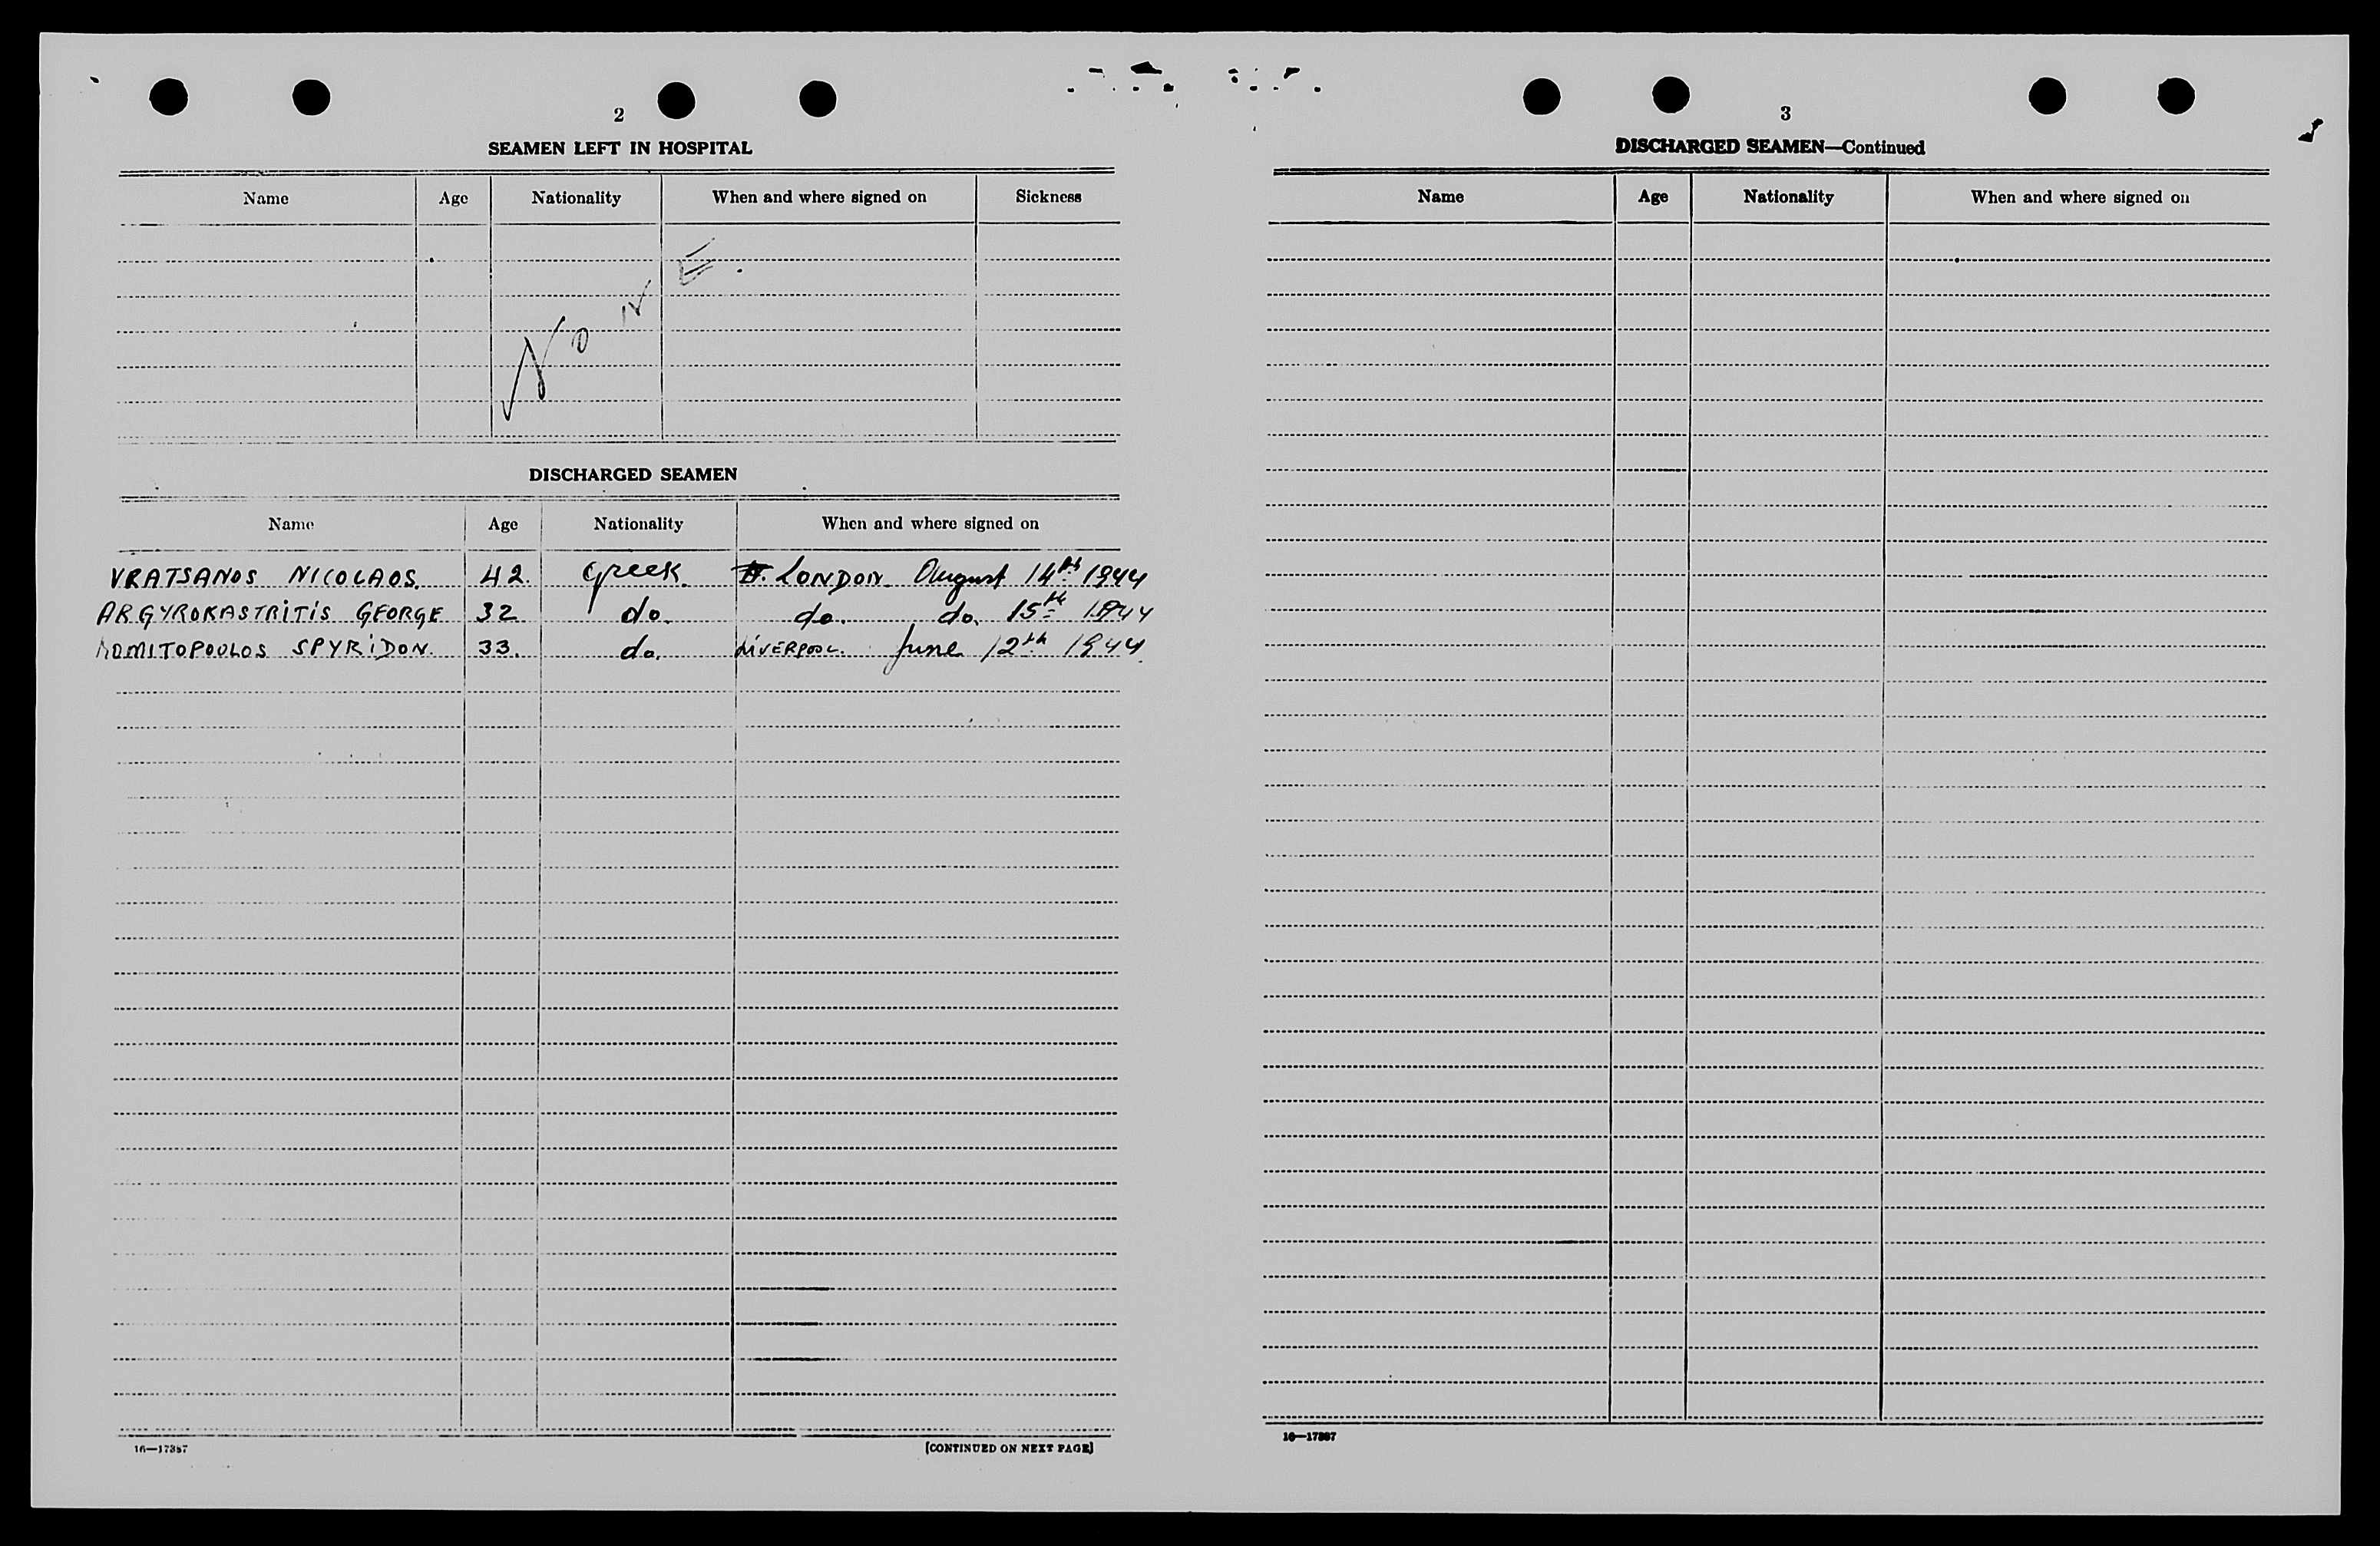 2
SEAMEN LEFT IN HOSPITAL
Name Age Nationality When and where signed on Sickness
NONE.
DISCHARGED SEAMEN
Name Age Nationality When and where signed on
VRATSANOS NICOLAOS. 42. Greek. LONDON August 14th 1944
ARGYROKASTRITIS GEORGE 32 do. do. do. 15th 1944
SPYRIDON. 33. do. LIVERPOOL. June 12th 1944
16—17387
[CONTINUED ON NEXT PAGE]
3
DISCHARGED SEAMEN—Continued
Name Age Nationality When and where signed on
16—17387